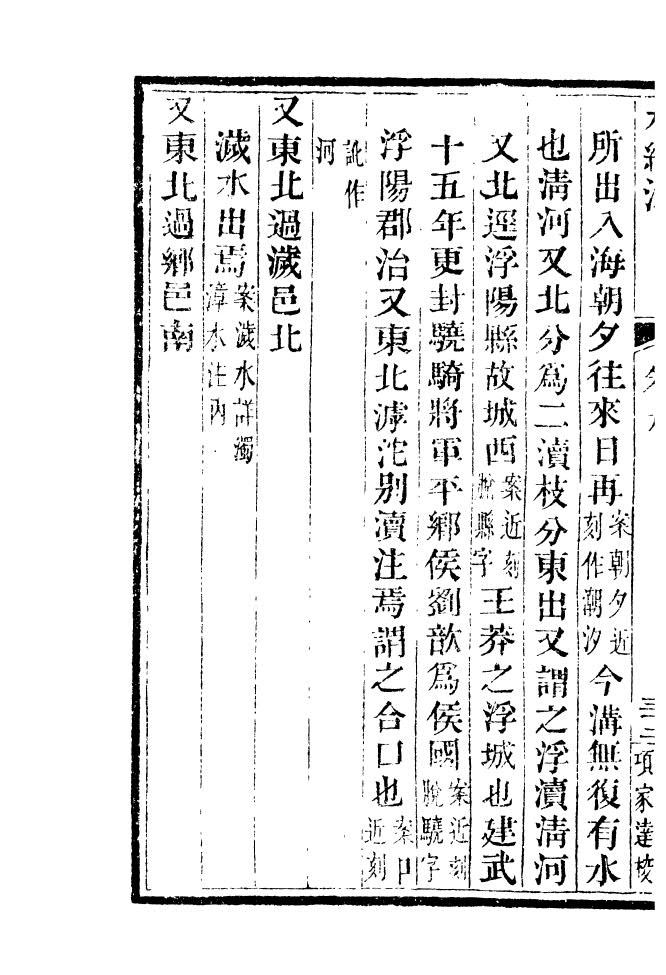 水經注 卷九 三二 項家達校
所出入海朝夕往來日再案朝夕近刻作潮汐今溝無復有水
也清河又北分爲二瀆枝分東出又謂之浮瀆清河
又北逕浮陽縣故城西案近刻脫縣字王莽之浮城也建武
十五年更封驍騎將軍平鄉侯劉歆爲侯國案近刻脫驍字
浮陽郡治又東北滹沱別瀆注焉謂之合口也案口近刻
訛作河
又東北過濊邑北
濊水出焉案濊水詳濁漳水注內
又東北過鄉邑南